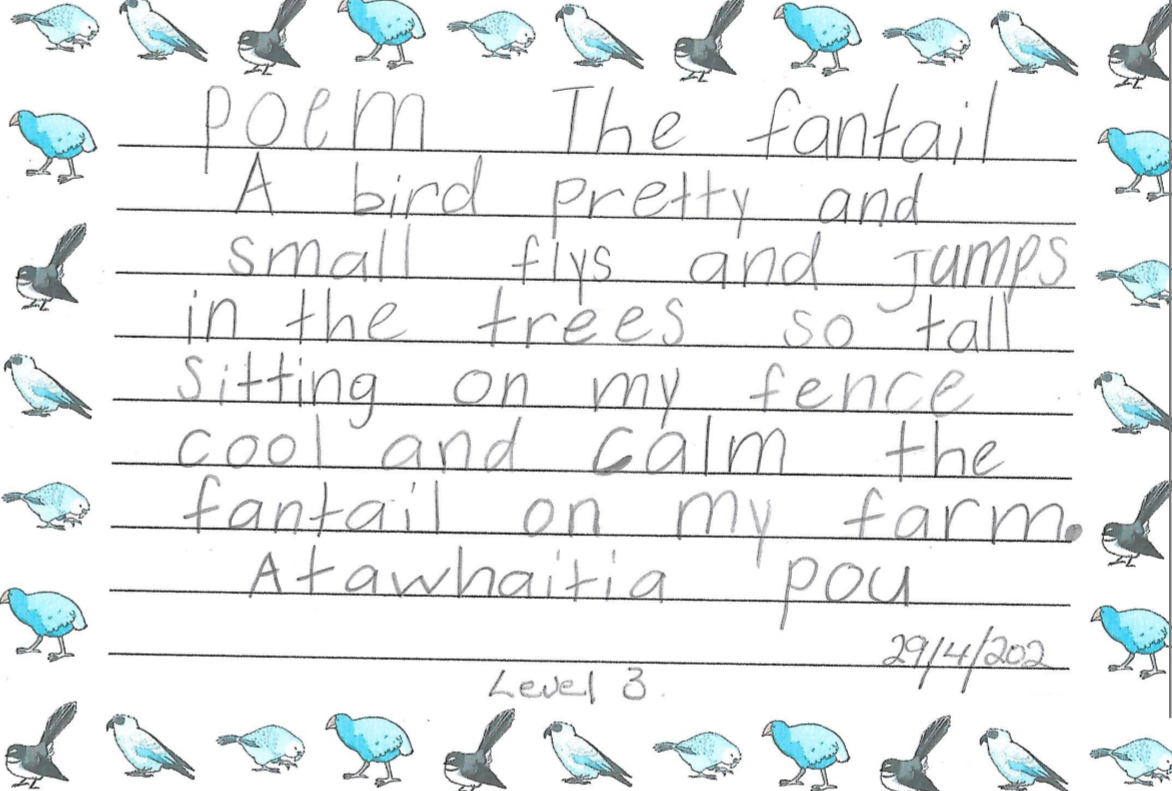 poem The fantail
A bird pretty and
small flys and jumps
in the trees so tall
sitting on my fence
cool and calm the
fantail on my farm.
Atawhaitia pou
29/4/202
Level 3